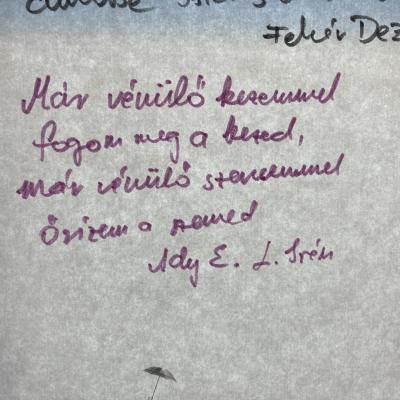 Fehér Dez
Már vénülő kezemmel
fogom meg a kezed,
már vénülő szememmel
Őrizem a szemed
Ady E. L. Irén